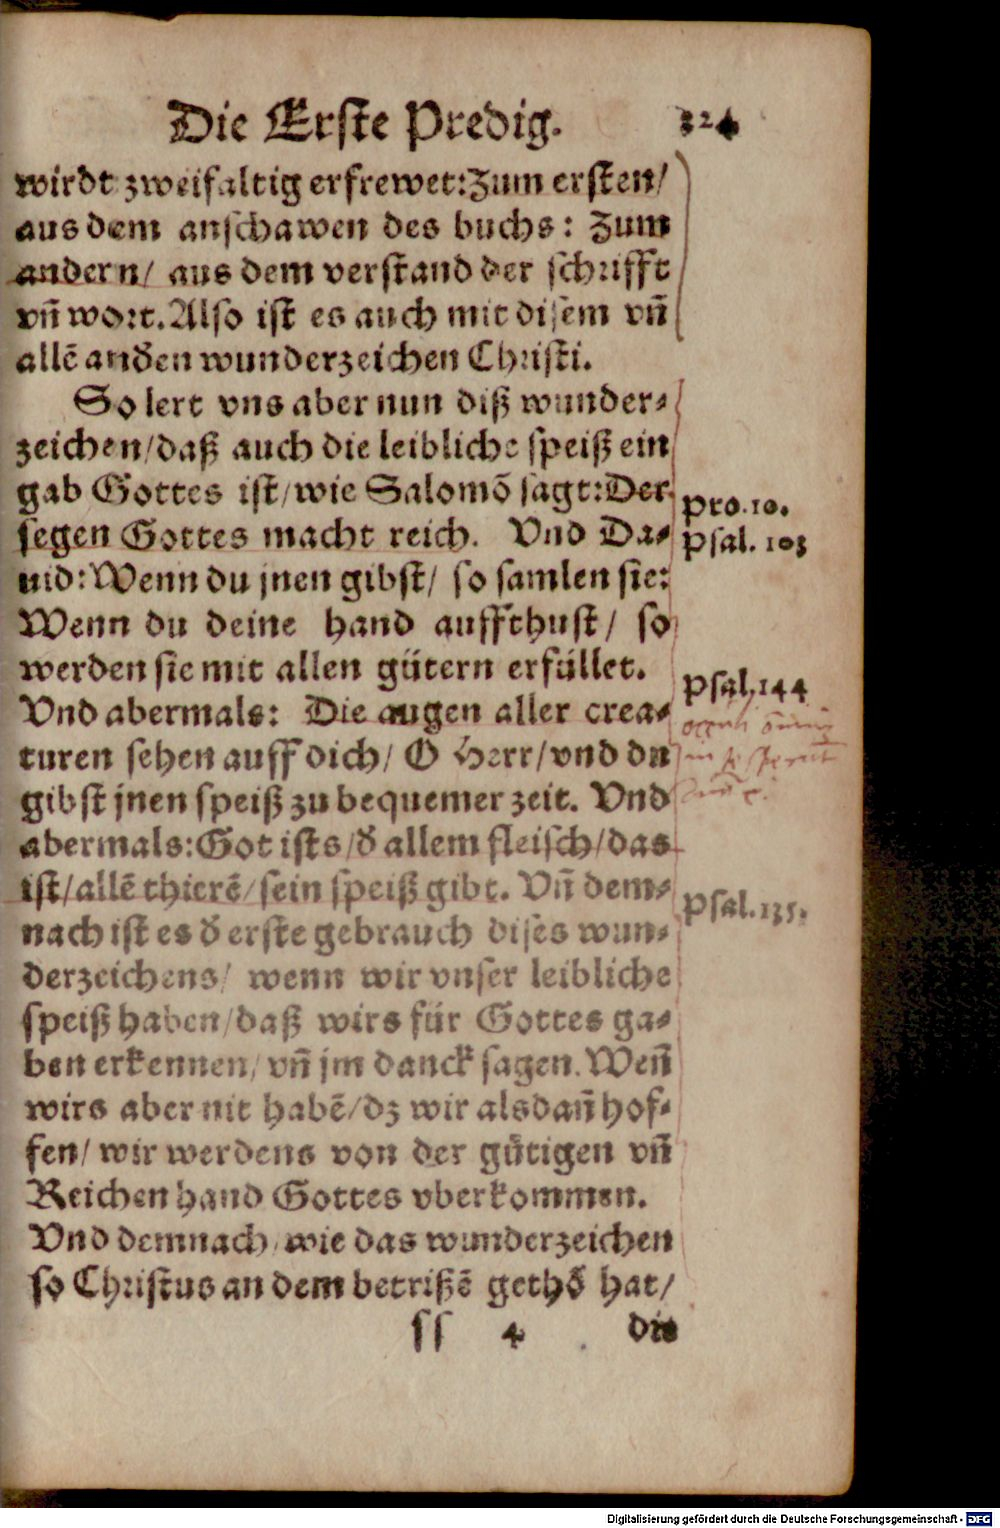 Die Erste Predig. 324
wirdt zweifaltig erfrewet: Zum ersten/
aus dem anschawen des buchs: Zum
andern/ aus dem verstand der schrifft
vñ wort. Also ist es auch mit disem vñ
allẽ andẽn wunderzeichen Christi.
So lert vns aber nun diß wunder⸗
zeichen/ daß auch die leibliche speiß ein
gab Gottes ist/ wie Salomõ sagt: Der
segen Gottes macht reich. Vnd Da⸗
uid: Wenn du jnen gibst/ so samlen sie:
Wenn du deine hand auffthust/ so
werden sie mit allen gütern erfüllet.
Vnd abermals: Die augen aller crea⸗
turen sehen auff dich/ O Herr/ vnd du
gibst jnen speiß zu bequemer zeit. Vnd
abermals: Got ists/ d̃ allem fleisch/ das
ist/ allẽ thierẽ/ sein speiß gibt. Vñ dem⸗
nach ist es d̃ erste gebrauch dises wun⸗
derzeichens/ wenn wir vnser leibliche
speiß haben/ daß wirs für Gottes ga⸗
ben erkennen/ vñ jm danck sagen. Weñ
wirs aber nit habẽ/ dz wir alsdañ hof⸗
fen/ wir werdens von der gütigen vñ
Reichen hand Gottes vberkommen.
Vnd demnach/ wie das wunderzeichen
so Christus an dem betrißẽ gethõ hat/
ss 4 die
Pro. 10.
Psal. 103
Psal. 144
Psal. 135.
Digitalisierung gefördert durch die Deutsche Forschungsgemeinschaft - DFG